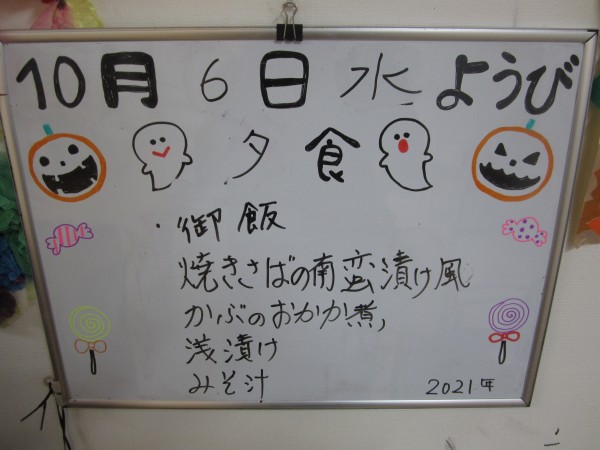 10月6日水ようび
夕食
・御飯
焼きさばの南蛮漬け風
かぶのおかか煮
浅漬け
みそ汁
2021年